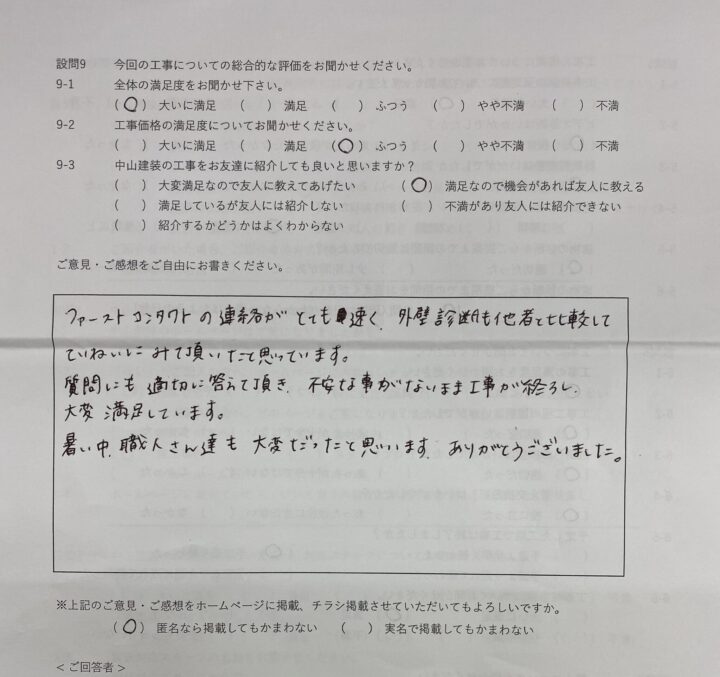 設問9 今回の工事についての総合的な評価をお聞かせください。
9-1 全体の満足度をお聞かせ下さい。
(○) 大いに満足 ( ) 満足 ( ) ふつう ( ) やや不満 ( ) 不満
9-2 工事価格の満足度についてお聞かせください。
( ) 大いに満足 ( ) 満足 (○) ふつう ( ) やや不満 ( ) 不満
9-3 中山建装の工事をお友達に紹介しても良いと思いますか？
( ) 大変満足なので友人に教えてあげたい (○) 満足なので機会があれば友人に教える
( ) 満足しているが友人には紹介しない ( ) 不満があり友人には紹介できない
( ) 紹介するかどうかはよくわからない
ご意見・ご感想をご自由にお書きください。
ファーストコンタクトの連絡がとても速く、外壁診断も他者と比較して
ていねいにみて頂いたと思っています。
質問にも適切に答えて頂き、不安な事がないまま工事が終了し、
大変満足しています。
暑い中、職人さん達も大変だったと思います。ありがとうございました。
※上記のご意見・ご感想をホームページに掲載、チラシ掲載させていただいてもよろしいですか。
(○) 匿名なら掲載してもかまわない ( ) 実名で掲載してもかまわない
< ご回答者 >